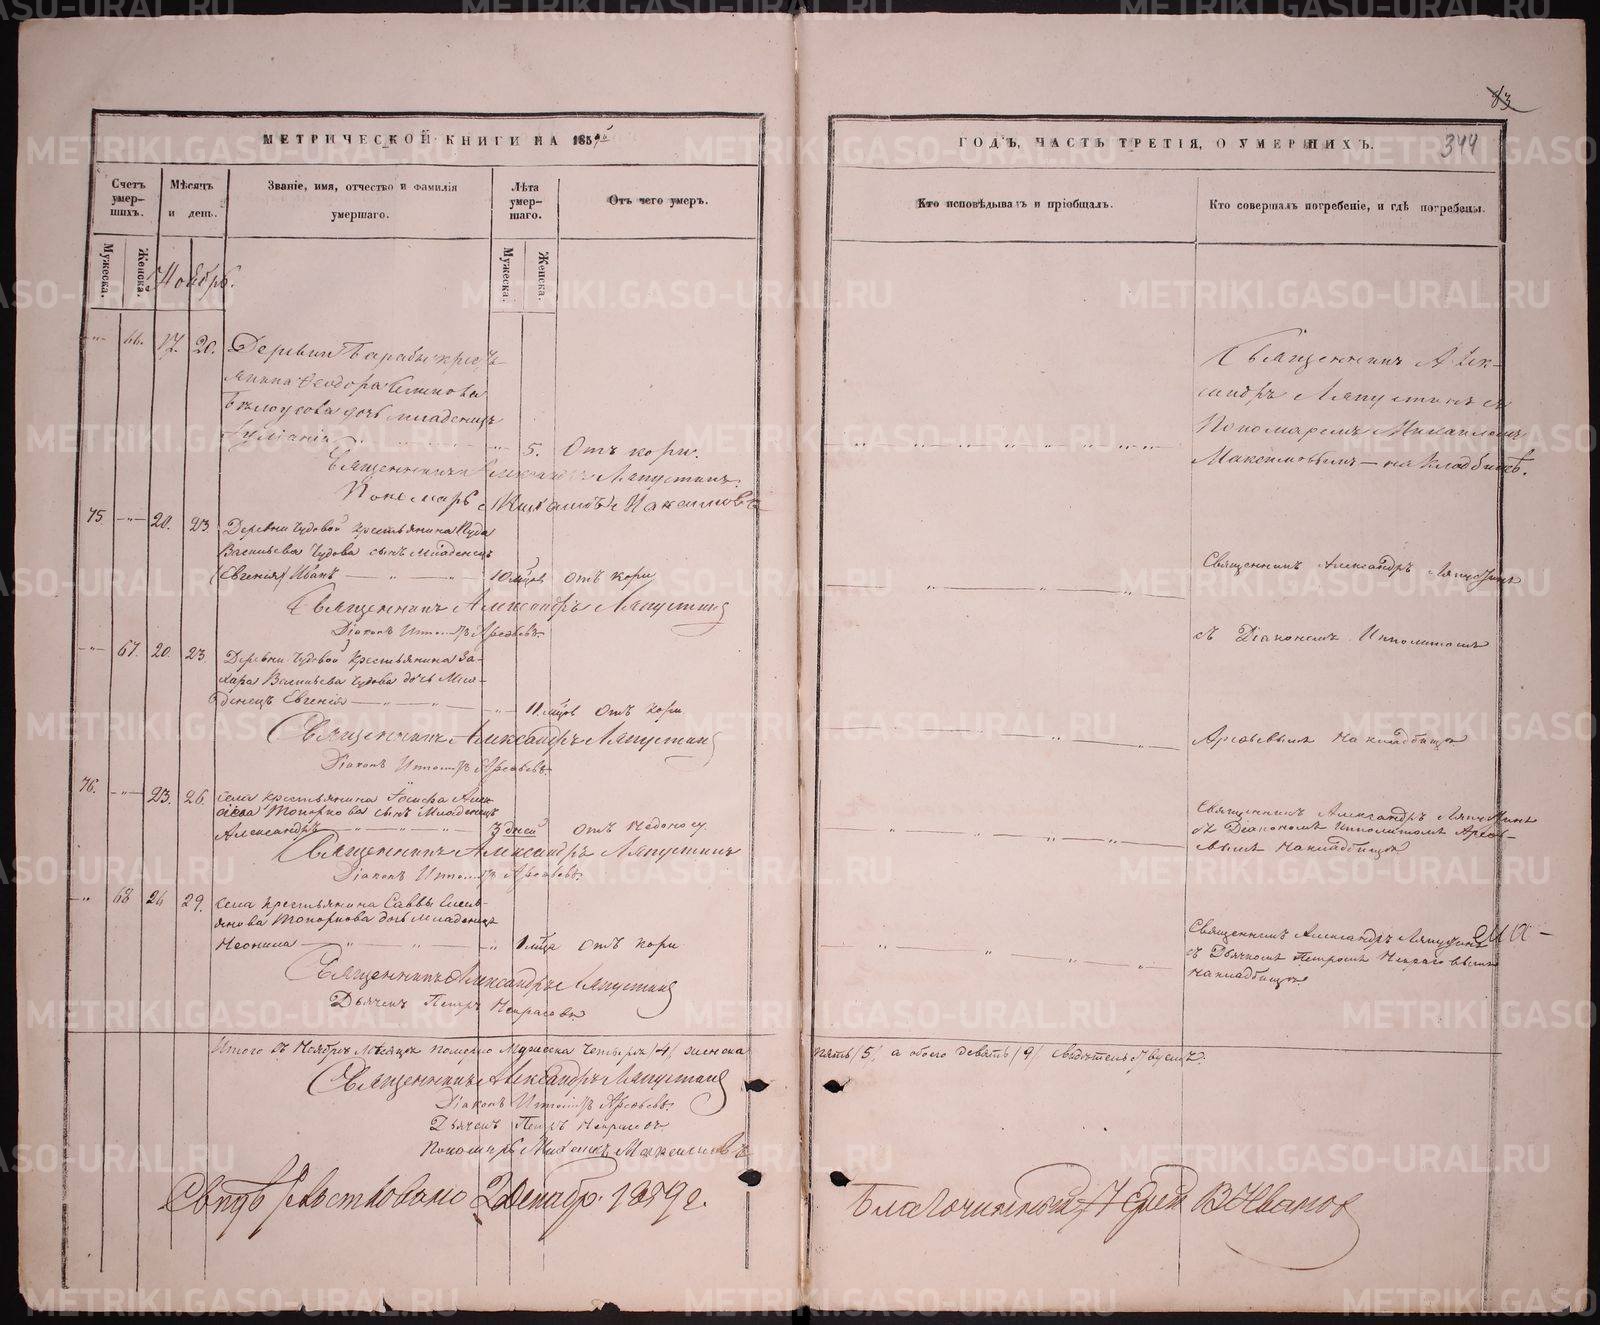 83
МЕТРИЧЕСКОЙ КНИГИ НА 1859й
ГОДЪ, ЧАСТЬ ТРЕТІЯ, О УМЕРШИХЪ.
344
Счетъ умер-шихъ.
Мужеска.
Женска.
Мѣсяцъ и день.
Званіе, имя, отчество и фамилія умершаго.
Лѣта умер-шаго.
Мужеска.
Женска.
Отъ чего умеръ.
Кто исповѣдывалъ и пріобщалъ.
Кто совершалъ погребеніе, и гдѣ погребены.
Ноябрь.
66. 17. 20. Деревни крес-
янина Феодора
Бѣлоусова дочь младенецъ
5. Отъ кори.
Священникъ Александръ Ляпустинъ
Пономарь Михаилъ Максимовъ
Священникъ Алек-
сандръ Ляпустинъ съ
Пономаремъ Михаиломъ
Максимовымъ — на кладбищѣ.
75. 20. 23. Деревни Чудовой крестьянина
Васильева Чудова сынъ младенецъ
(Евгенія) Иванъ 10 мцов отъ кори
Священникъ Александръ Ляпустинъ
Діаконъ Ипполитъ
Священникъ Александръ Ляпустинъ
съ Діакономъ Ипполитомъ
67. 20. 23. Деревни Чудовой крестьянина За-
хара Васильева Чудова дочь мла-
денецъ Евгенія 11 мцов отъ кори
Священникъ Александръ Ляпустинъ
Діаконъ Ипполитъ
на кладбищѣ
76. 23. 26. села крестьянина Іосифа Алек-
Топоркова сынъ младенецъ
Александръ 3 дней отъ недоносу
Священникъ Александръ Ляпустинъ
Діаконъ Ипполитъ
Священникъ Александръ Ляпустинъ
съ Діакономъ Ипполитомъ
вымъ на кладбищѣ
68 26 29. села крестьянина Саввы
Топоркова дочь младенецъ
Неонила 1 мца отъ кори
Священникъ Александръ Ляпустинъ
Дьячекъ Петръ Некрасовъ
Священникъ Александръ Ляпустинъ
съ Дьячкомъ Петромъ Некрасовымъ
на кладбищѣ
Итого въ Ноябрѣ Мѣсяцѣ померло Мужеска четыре /4/ женска
пять /5/ а обоего девять /9/ свидѣтельствуемъ.
Священникъ Александръ Ляпустинъ
Діаконъ Ипполитъ
Дьячекъ Петръ Некрасовъ
Пономарь Михаилъ Максимовъ
Свидѣтельствовано 2 Декабр. 1859 г.
Благочинный Іерей В. Ивановъ
METRIKI.GASO-URAL.RU